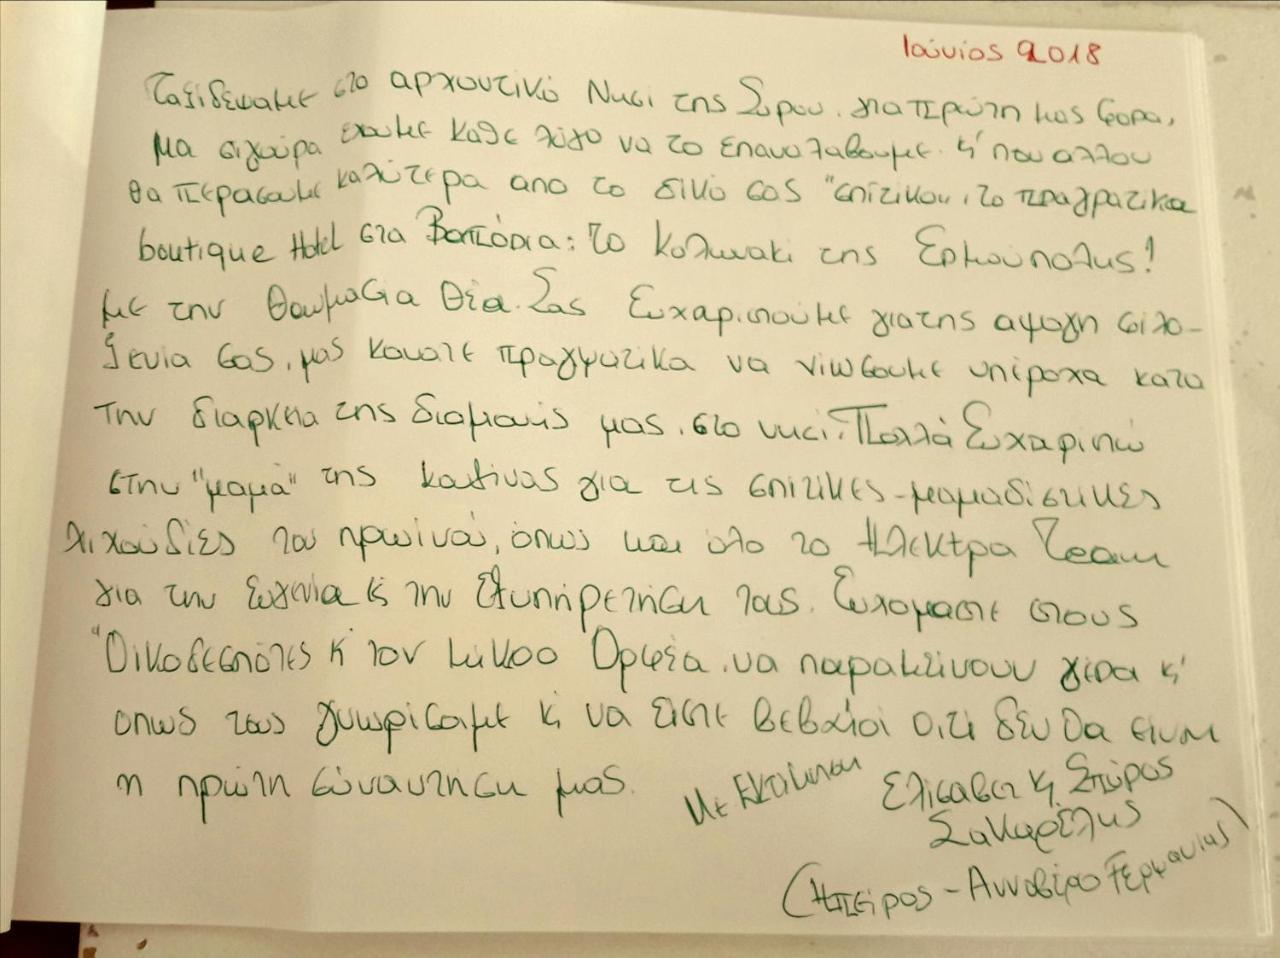 Ιούνιος 2018
Ταξιδεψαμε στο αρχοντικό Νησι της Σύρου. για πρώτη μας φορα,
μα σιγούρα εχουμε καθε λόγο να το επαναλαβουμε. κ' που αλλου
θα περασουμε καλύτερα απο το δικό σας "σπίτικου, το πραγματικα
boutique Hotel στα Βαπόρια: το κολωνακι της Ερμούπολης!
με την θαυμασια θέα. Σας Ευχαριστούμε για της αψογη φιλο-
ξενία σας, μας κανατε πραγματικα να νιωσουμε υπέροχα κατα
την διαρκεια της διαμονής μας. στο νησι. Πολλά Ευχαριστώ
στην "μαμά" της κατινας για τις σπιτικες-μαμαδίστικες
λιχουδιές του πρωϊνού, όπως και όλο το Ηλεκτρα Team
για την ευγενια κ την εξυπηρετηση τους. Ευχομαστε στους
"Οικοδεσπότες κ τον μικρο Ορφέα. να παραμείνουν γερα κ'
οπως τους γνωρίσαμε κ να ειστε βεβαιοι οτι δεν θα ειναι
η πρώτη συναντηση μας.
Με εκτιμηση
Ελισαβετ κ. Σπύρος
Σακαρέλης
(Ηπειρος - Αννοβέρο Γερμανιας)